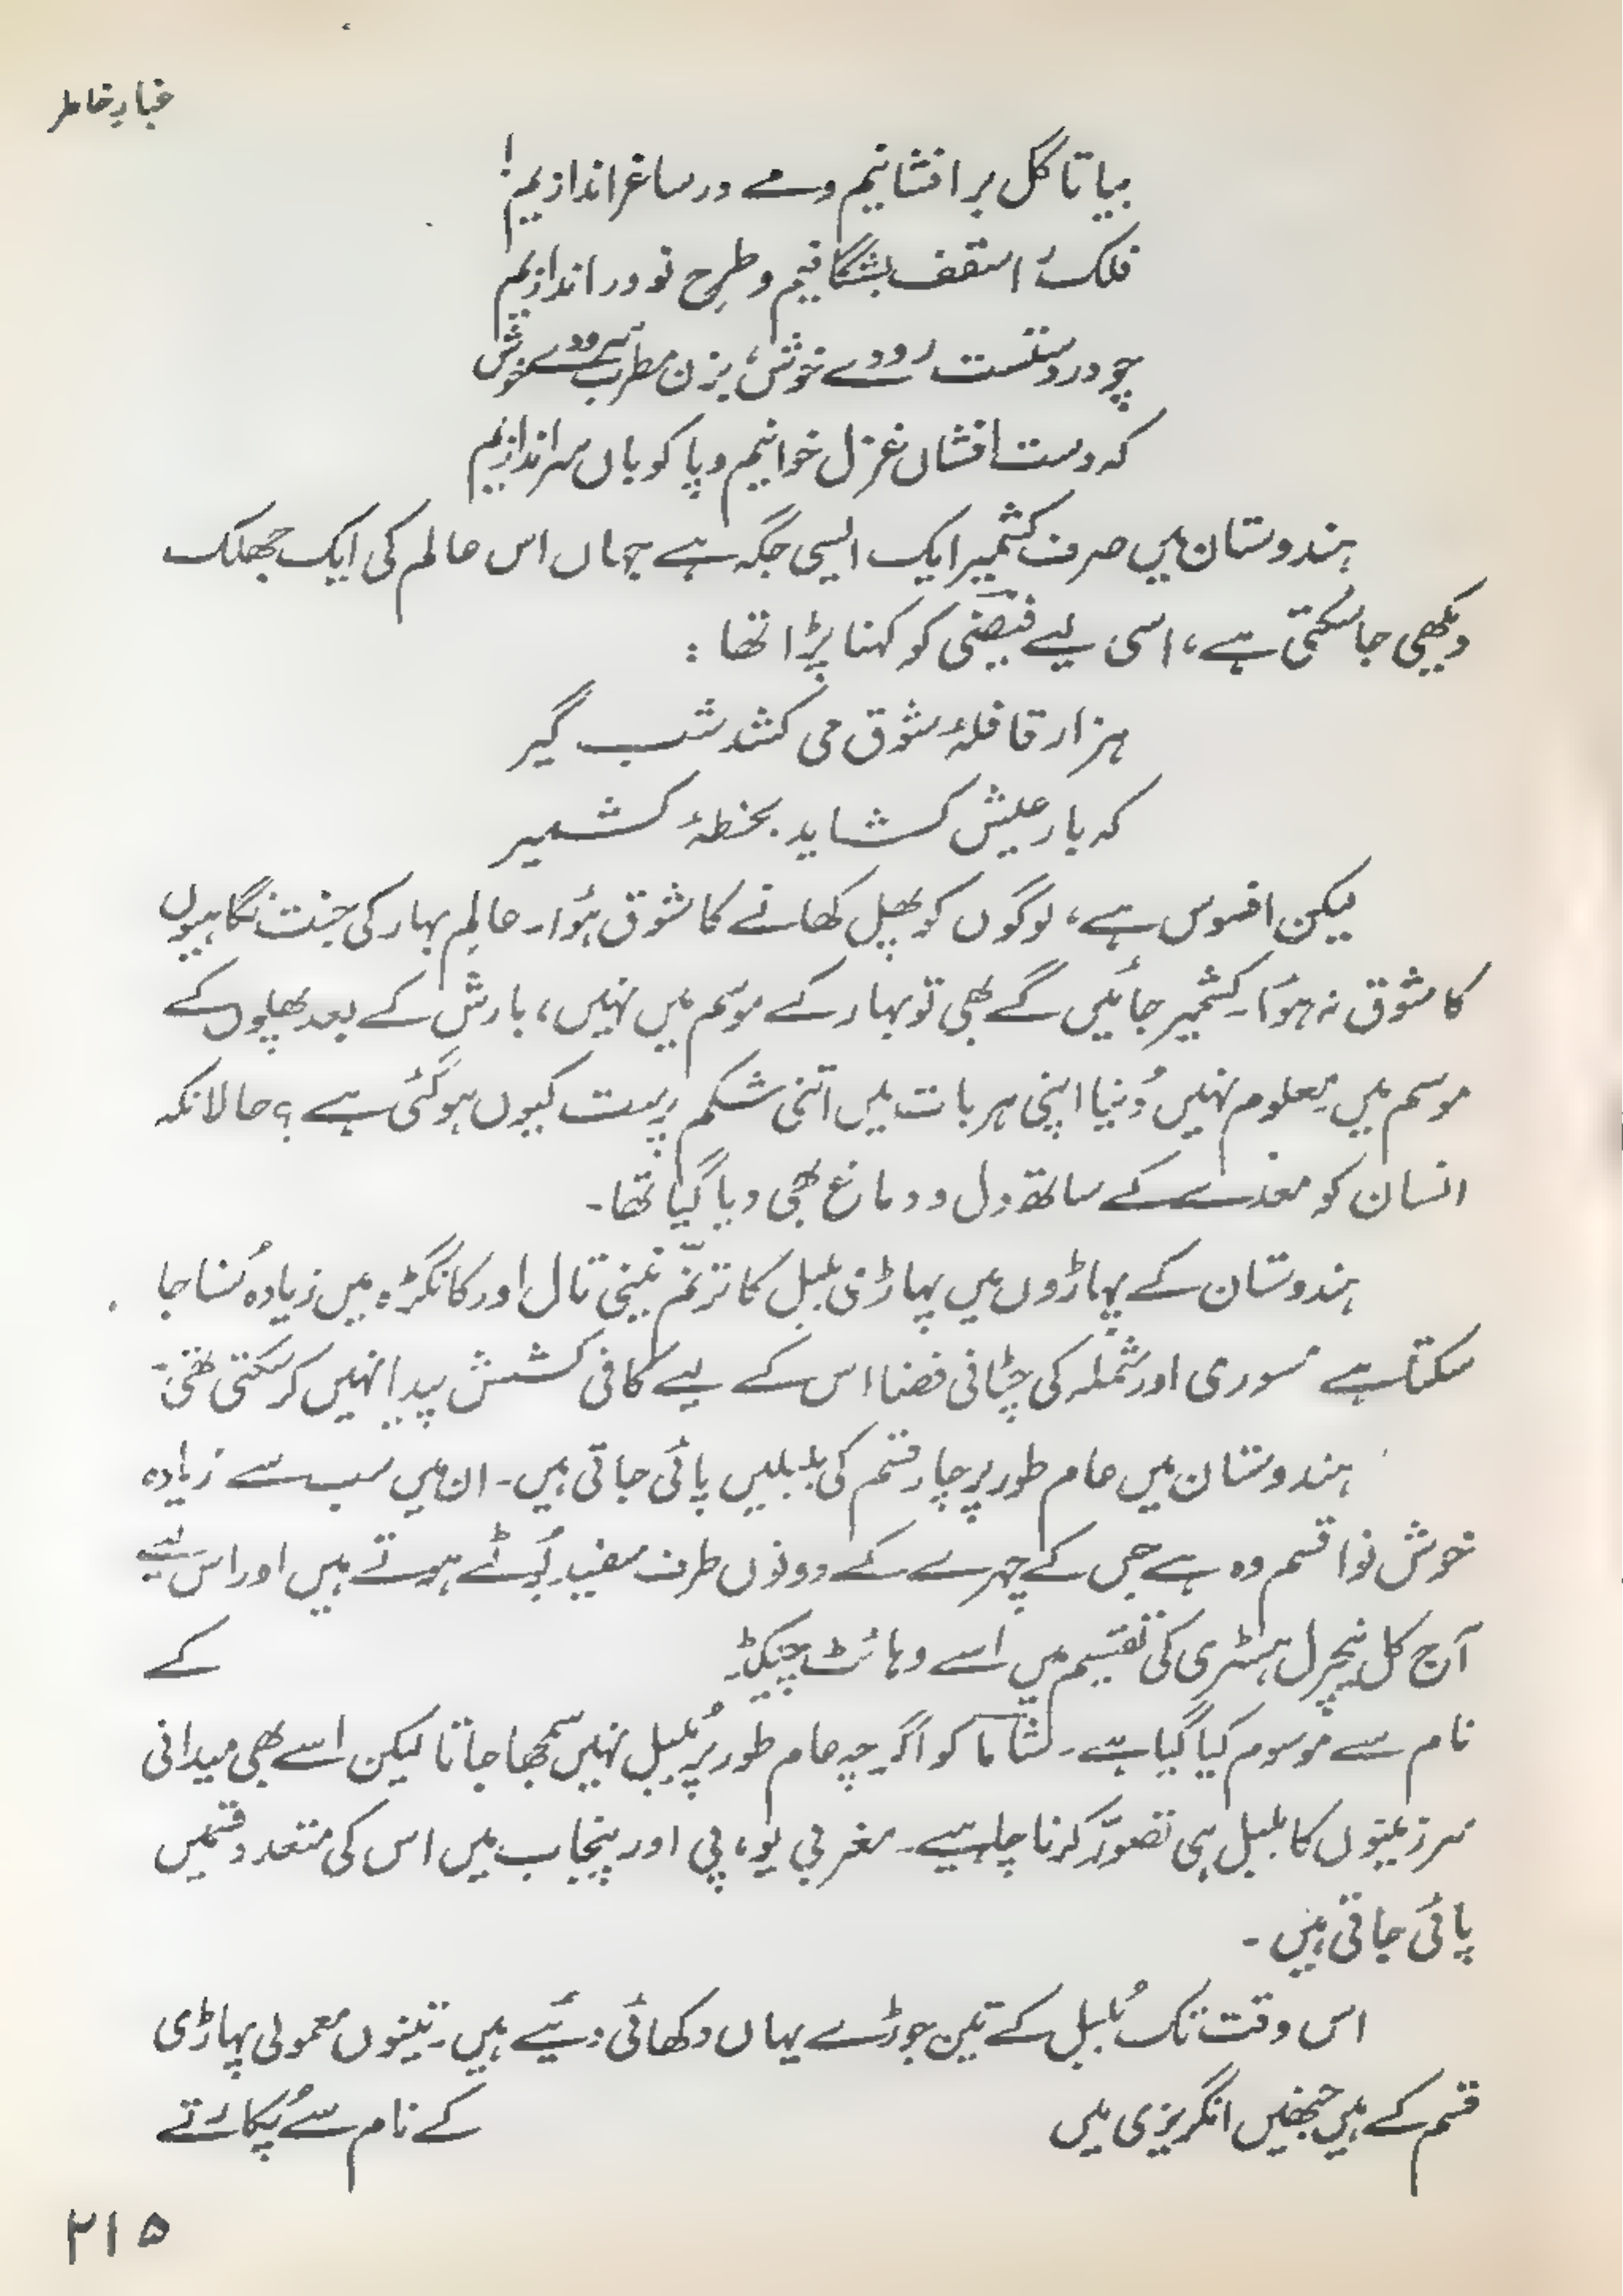 غبارِ خاطر
بیا تا گل بر افشانیم و مے در ساغر اندازیم!
فلک را سقف بشگافیم و طرح نو در اندازیم
چو در دستست رودے خوش، بزن مطرب سرودے خوش
کہ دست افشاں غزل خوانیم و پا کوباں سر اندازیم
ہندوستان میں صرف کشمیر ایک ایسی جگہ ہے جہاں اس عالم کی ایک جھلک
دیکھی جا سکتی ہے، اسی لیے فیضی کو کہنا پڑا تھا :
ہزار قافلۂ شوق می کشد شب گیر
کہ بار عیش کشاید بخطۂ کشمیر
لیکن افسوس ہے، لوگوں کو پھل کھانے کا شوق ہُوا۔ عالمِ بہار کی جنت نگاہیوں
کا شوق نہ ہوا۔ کشمیر جائیں گے بھی تو بہار کے موسم میں نہیں، بارش کے بعد پھلوں کے
موسم میں۔ معلوم نہیں دُنیا اپنی ہر بات میں اتنی شکم پرست کیوں ہو گئی ہے ؟ حالانکہ
انسان کو معدے کے ساتھ دل و دماغ بھی دیا گیا تھا۔
ہندوستان کے پہاڑوں میں پہاڑی بلبل کا ترنّم نینی تال اور کانگڑہ میں زیادہ سُنا جا
سکتا ہے مسوری اور شملہ کی چٹانی فضا اس کے لیے کافی کشش پیدا نہیں کر سکتی تھی۔
ہندوستان میں عام طور پر چار قسم کی بلبلیں پائی جاتی ہیں۔ ان میں سب سے زیادہ
خوش نوا قسم وہ ہے جس کے چہرے کے دونوں طرف سفید بُوٹے ہوتے ہیں اور اس لیے
آج کل نیچرل ہسٹری کی تقسیم میں اسے وہائٹ چیکڈ کے
نام سے موسوم کیا گیا ہے۔ شاما کو اگرچہ عام طور پر بُلبل نہیں سمجھا جاتا لیکن اسے بھی میدانی
سرزمینوں کا بلبل ہی تصوّر کرنا چاہیے۔ مغربی یو، پی اور پنجاب میں اس کی متعدد قسمیں
پائی جاتی ہیں ۔
اس وقت تک بُلبل کے تین جوڑے یہاں دکھائی دئیے ہیں۔ تینوں معمولی پہاڑی
قسم کے ہیں جنھیں انگریزی میں کے نام سے پُکارتے
۲۱۵